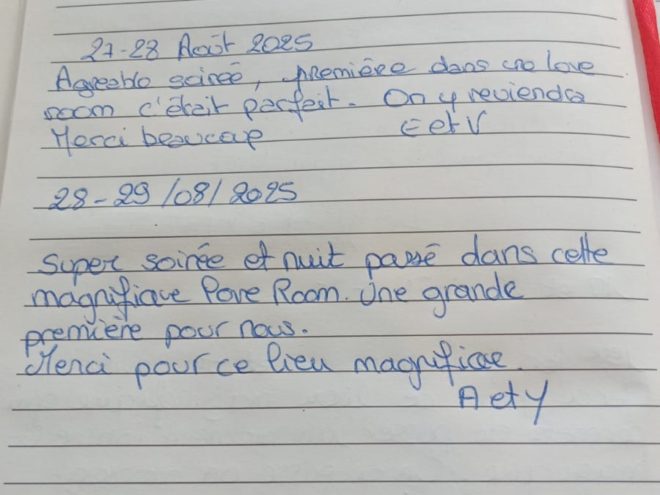 27-28 Août 2025
Agreable soirée, première dans une love
room c'était parfait. On y reviendra
Merci beaucoup E et V
28-29/08/2025
Super soirée et nuit passé dans cette
magnifique Love Room. Une grande
première pour nous.
Merci pour ce lieu magnifique.
A et Y